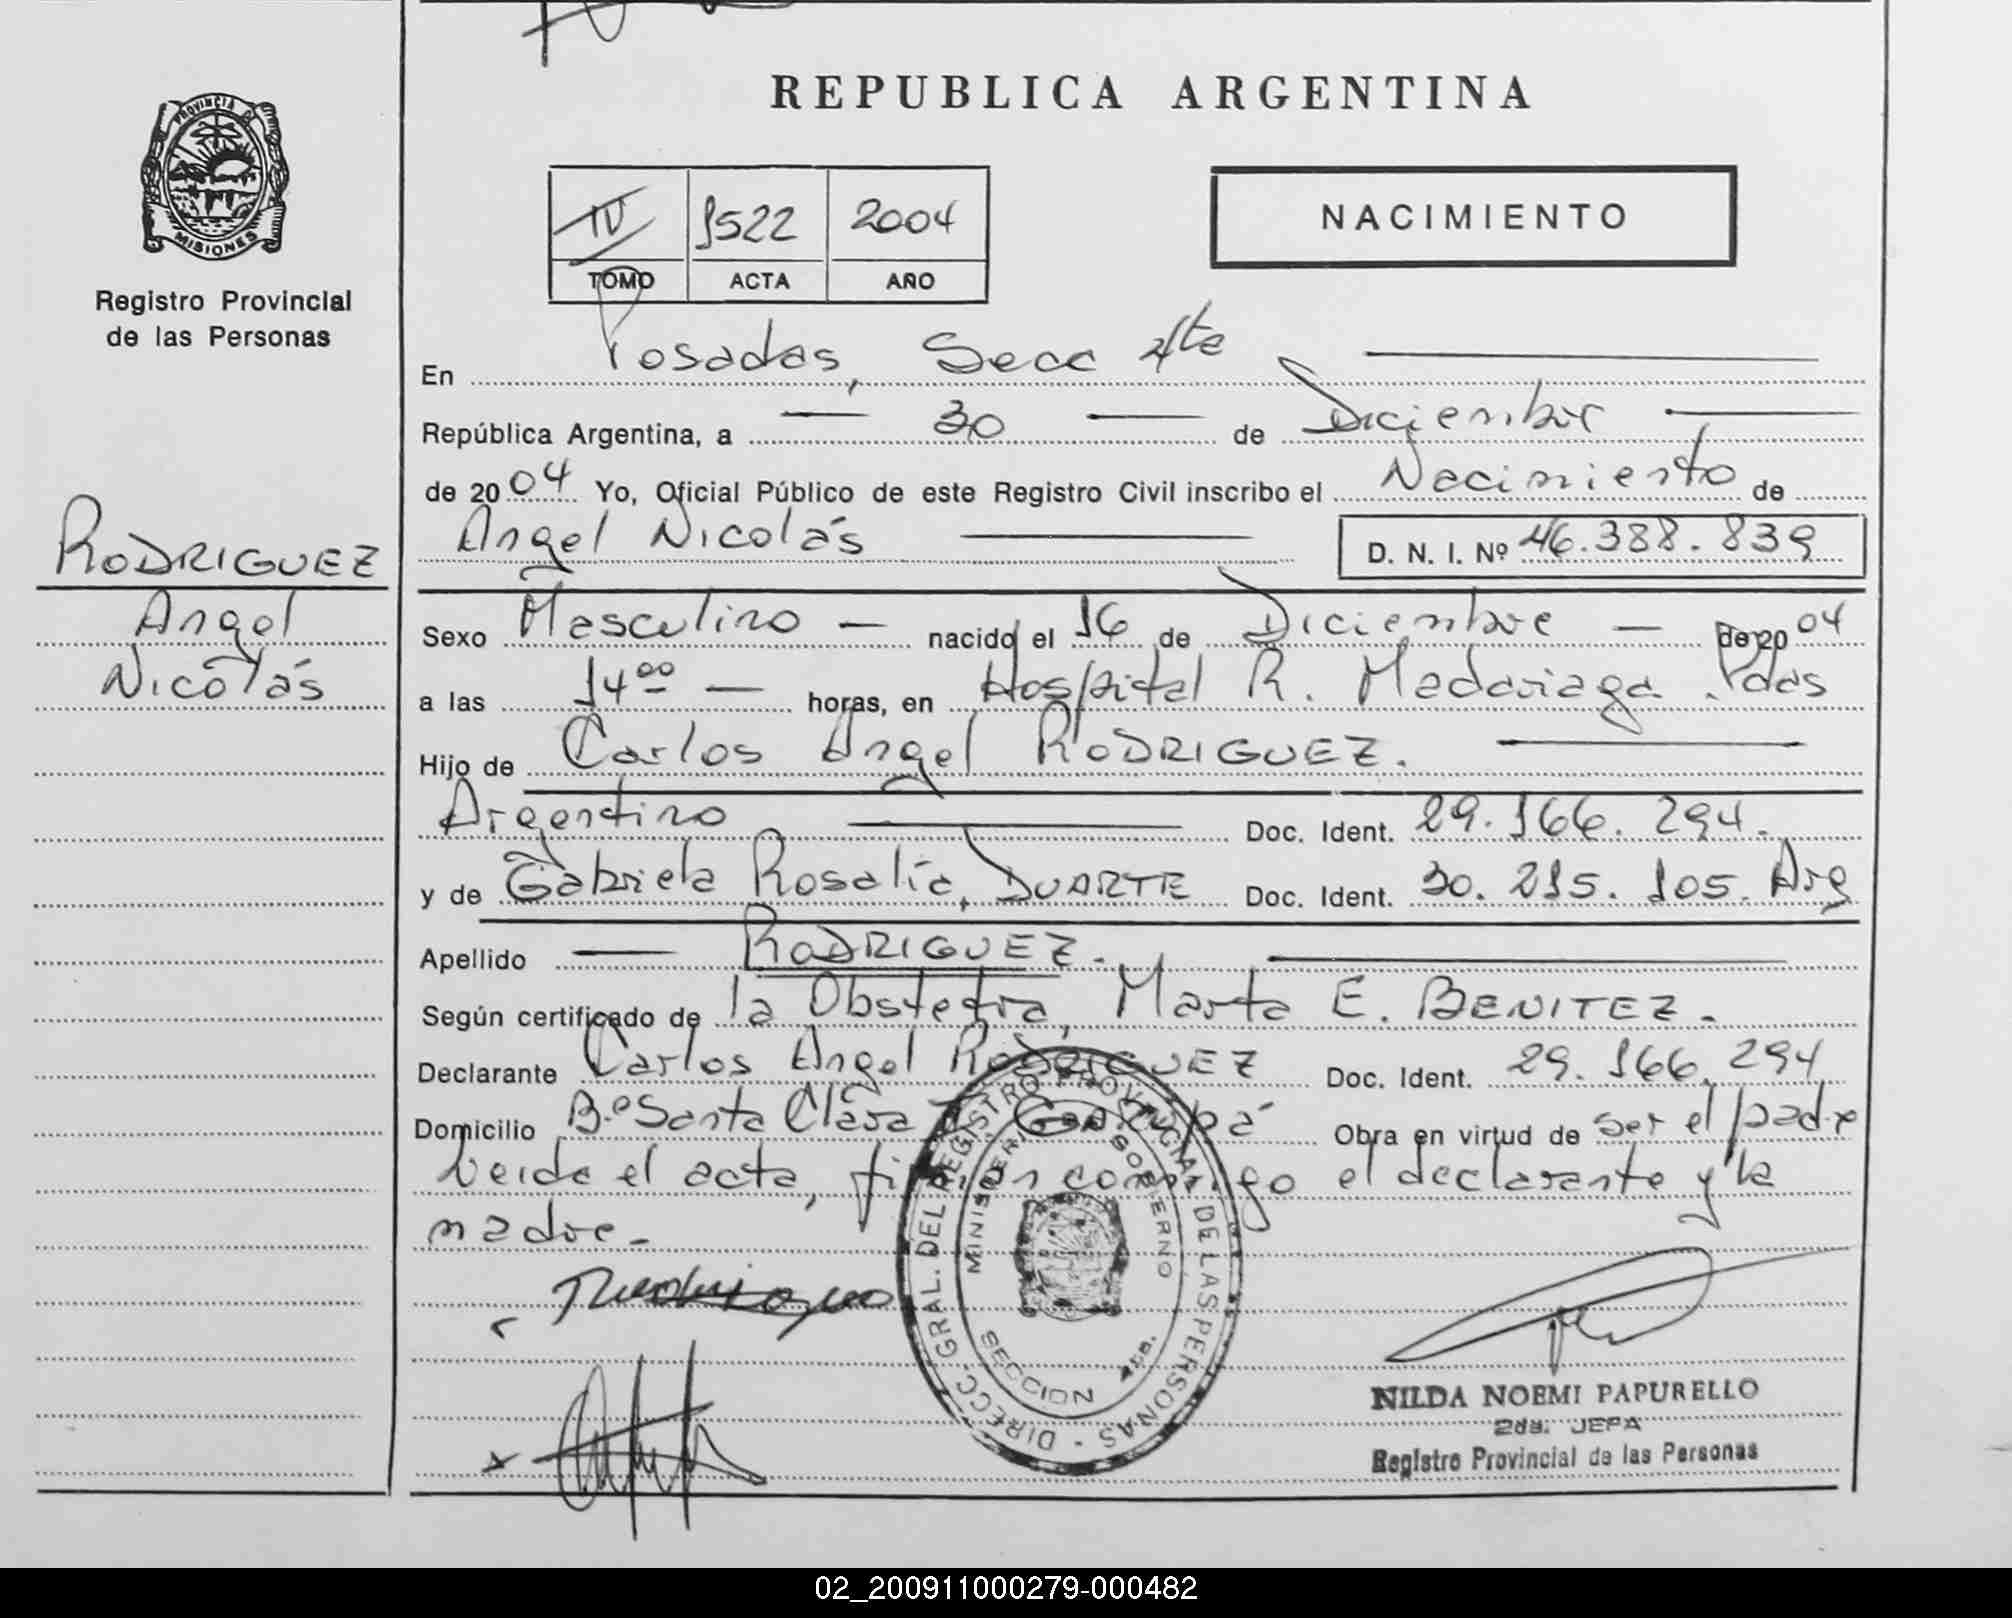 REPUBLICA ARGENTINA
PROVINCIA D
MISIONES
Registro Provincial
de las Personas
IV 1522 2004
TOMO ACTA AÑO
NACIMIENTO
En Posadas, Secc 4ta
República Argentina, a — 30 — de Diciembre —
de 2004 Yo, Oficial Público de este Registro Civil inscribo el Nacimiento de
Angel Nicolás — D. N. I. Nº 46.388.839
RODRIGUEZ
Angel
Nicolás
Sexo Masculino — nacido el 16 de Diciembre — de 2004
a las 14⁰⁰ — horas, en Hospital R. Madariaga. Pdas
Hijo de Carlos Angel RODRIGUEZ. —
Argentino — Doc. Ident. 29.166.294.
y de Gabriela Rosalía, DUARTE Doc. Ident. 30.215.105. Arg
Apellido — RODRIGUEZ. —
Según certificado de la Obstetra, Marta E. BENITEZ.
Declarante Carlos Angel RODRIGUEZ Doc. Ident. 29.166.294
Domicilio B.º Santa Clara Garupá Obra en virtud de ser el padre
Leida el acta, firman conmigo el declarante y la
madre.-
DIRECC. GRAL. DEL REGISTRO PROVINCIAL DE LAS PERSONAS
MINISTERIO GOBIERNO
SECCION 4ta.
NILDA NOEMI PAPURELLO
2da. JEFA
Registro Provincial de las Personas
02_200911000279-000482